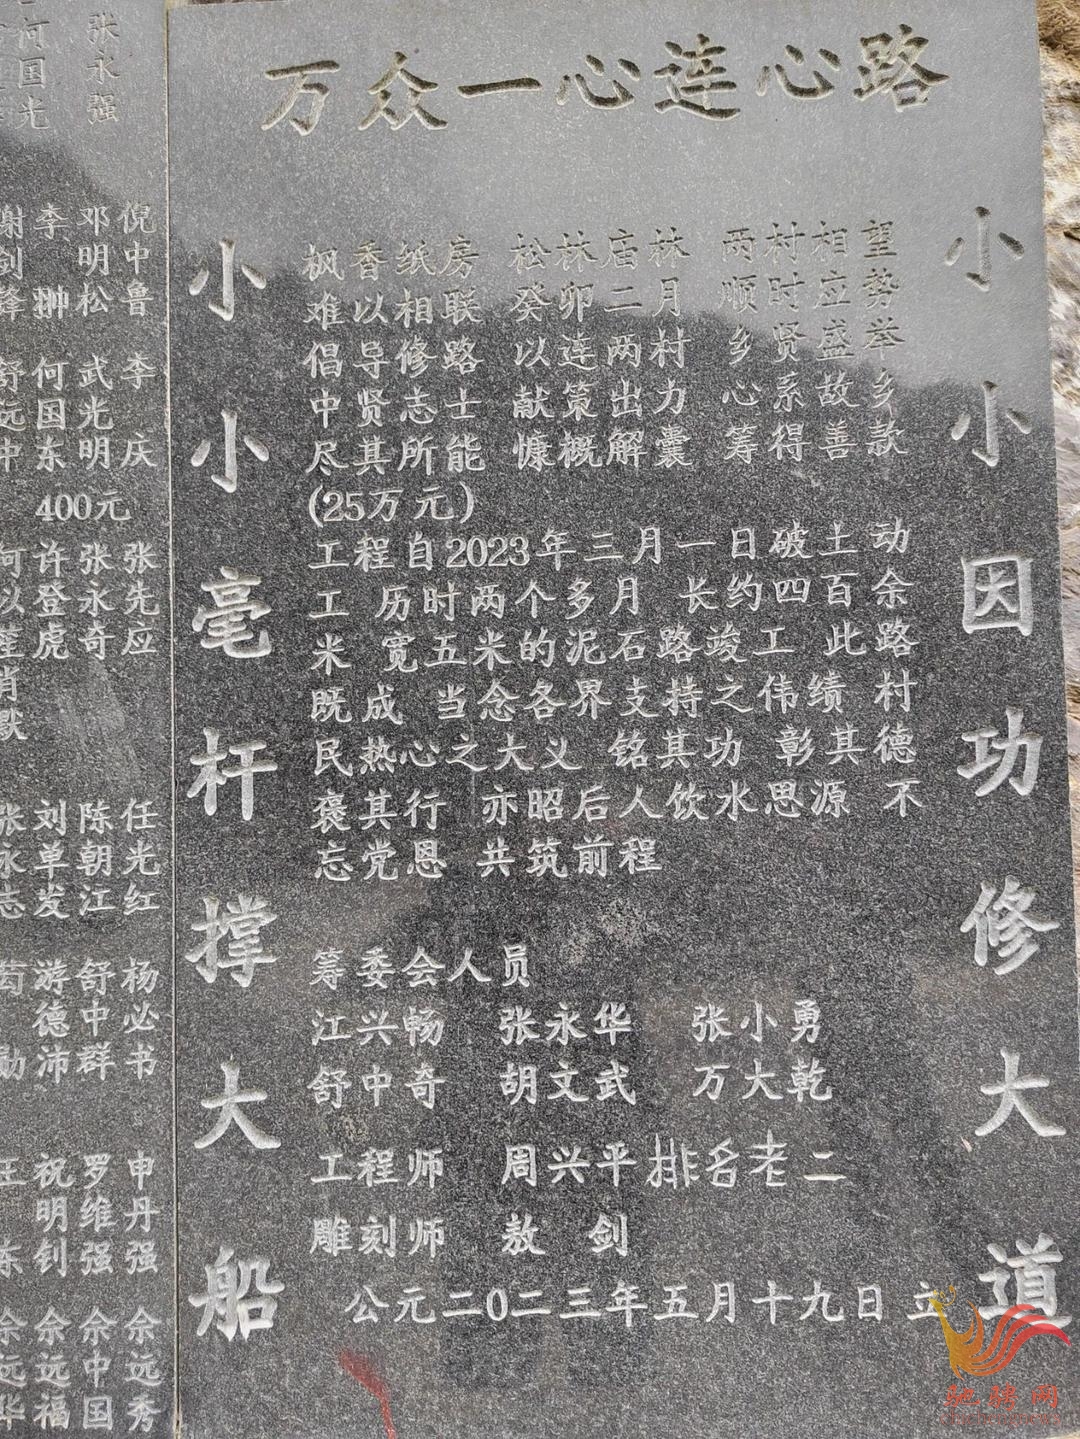 万众一心连心路
小小因功修大道
小小毫杆撑大船
枫香纸房 松林庙林 两村相望
难以相联 癸卯二月 顺时应势
倡导修路 以连两村 乡贤盛举
中贤志士 献策出力 心系故乡
尽其所能 慷概解囊 筹得善款
(25万元)
工程自2023年三月一日破土动
工 历时两个多月 长约四百余
米 宽五米的泥石路竣工 此路
既成 当念各界支持之伟绩 村
民热心之大义 铭其功 彰其德
褒其行 亦昭后人饮水思源 不
忘党恩 共筑前程
筹委会人员
江兴畅 张永华 张小勇
舒中奇 胡文武 万大乾
工程师 周兴平排名老二
雕刻师 敖 剑
公元二0二三年五月十九日 立
河国光 张永强
谢剑锋 李翀 邓明松 倪中鲁
舒远中 何国东 武光明 李庆
400元
何以笙肖默 许登虎 张永奇 张先应
张永志 刘单发 陈朝江 任光红
苟勋 游德沛 舒中群 杨必书
王东 祝明钊 罗维强 申丹强
佘远华 佘远福 佘中国 佘远秀
驰骋网